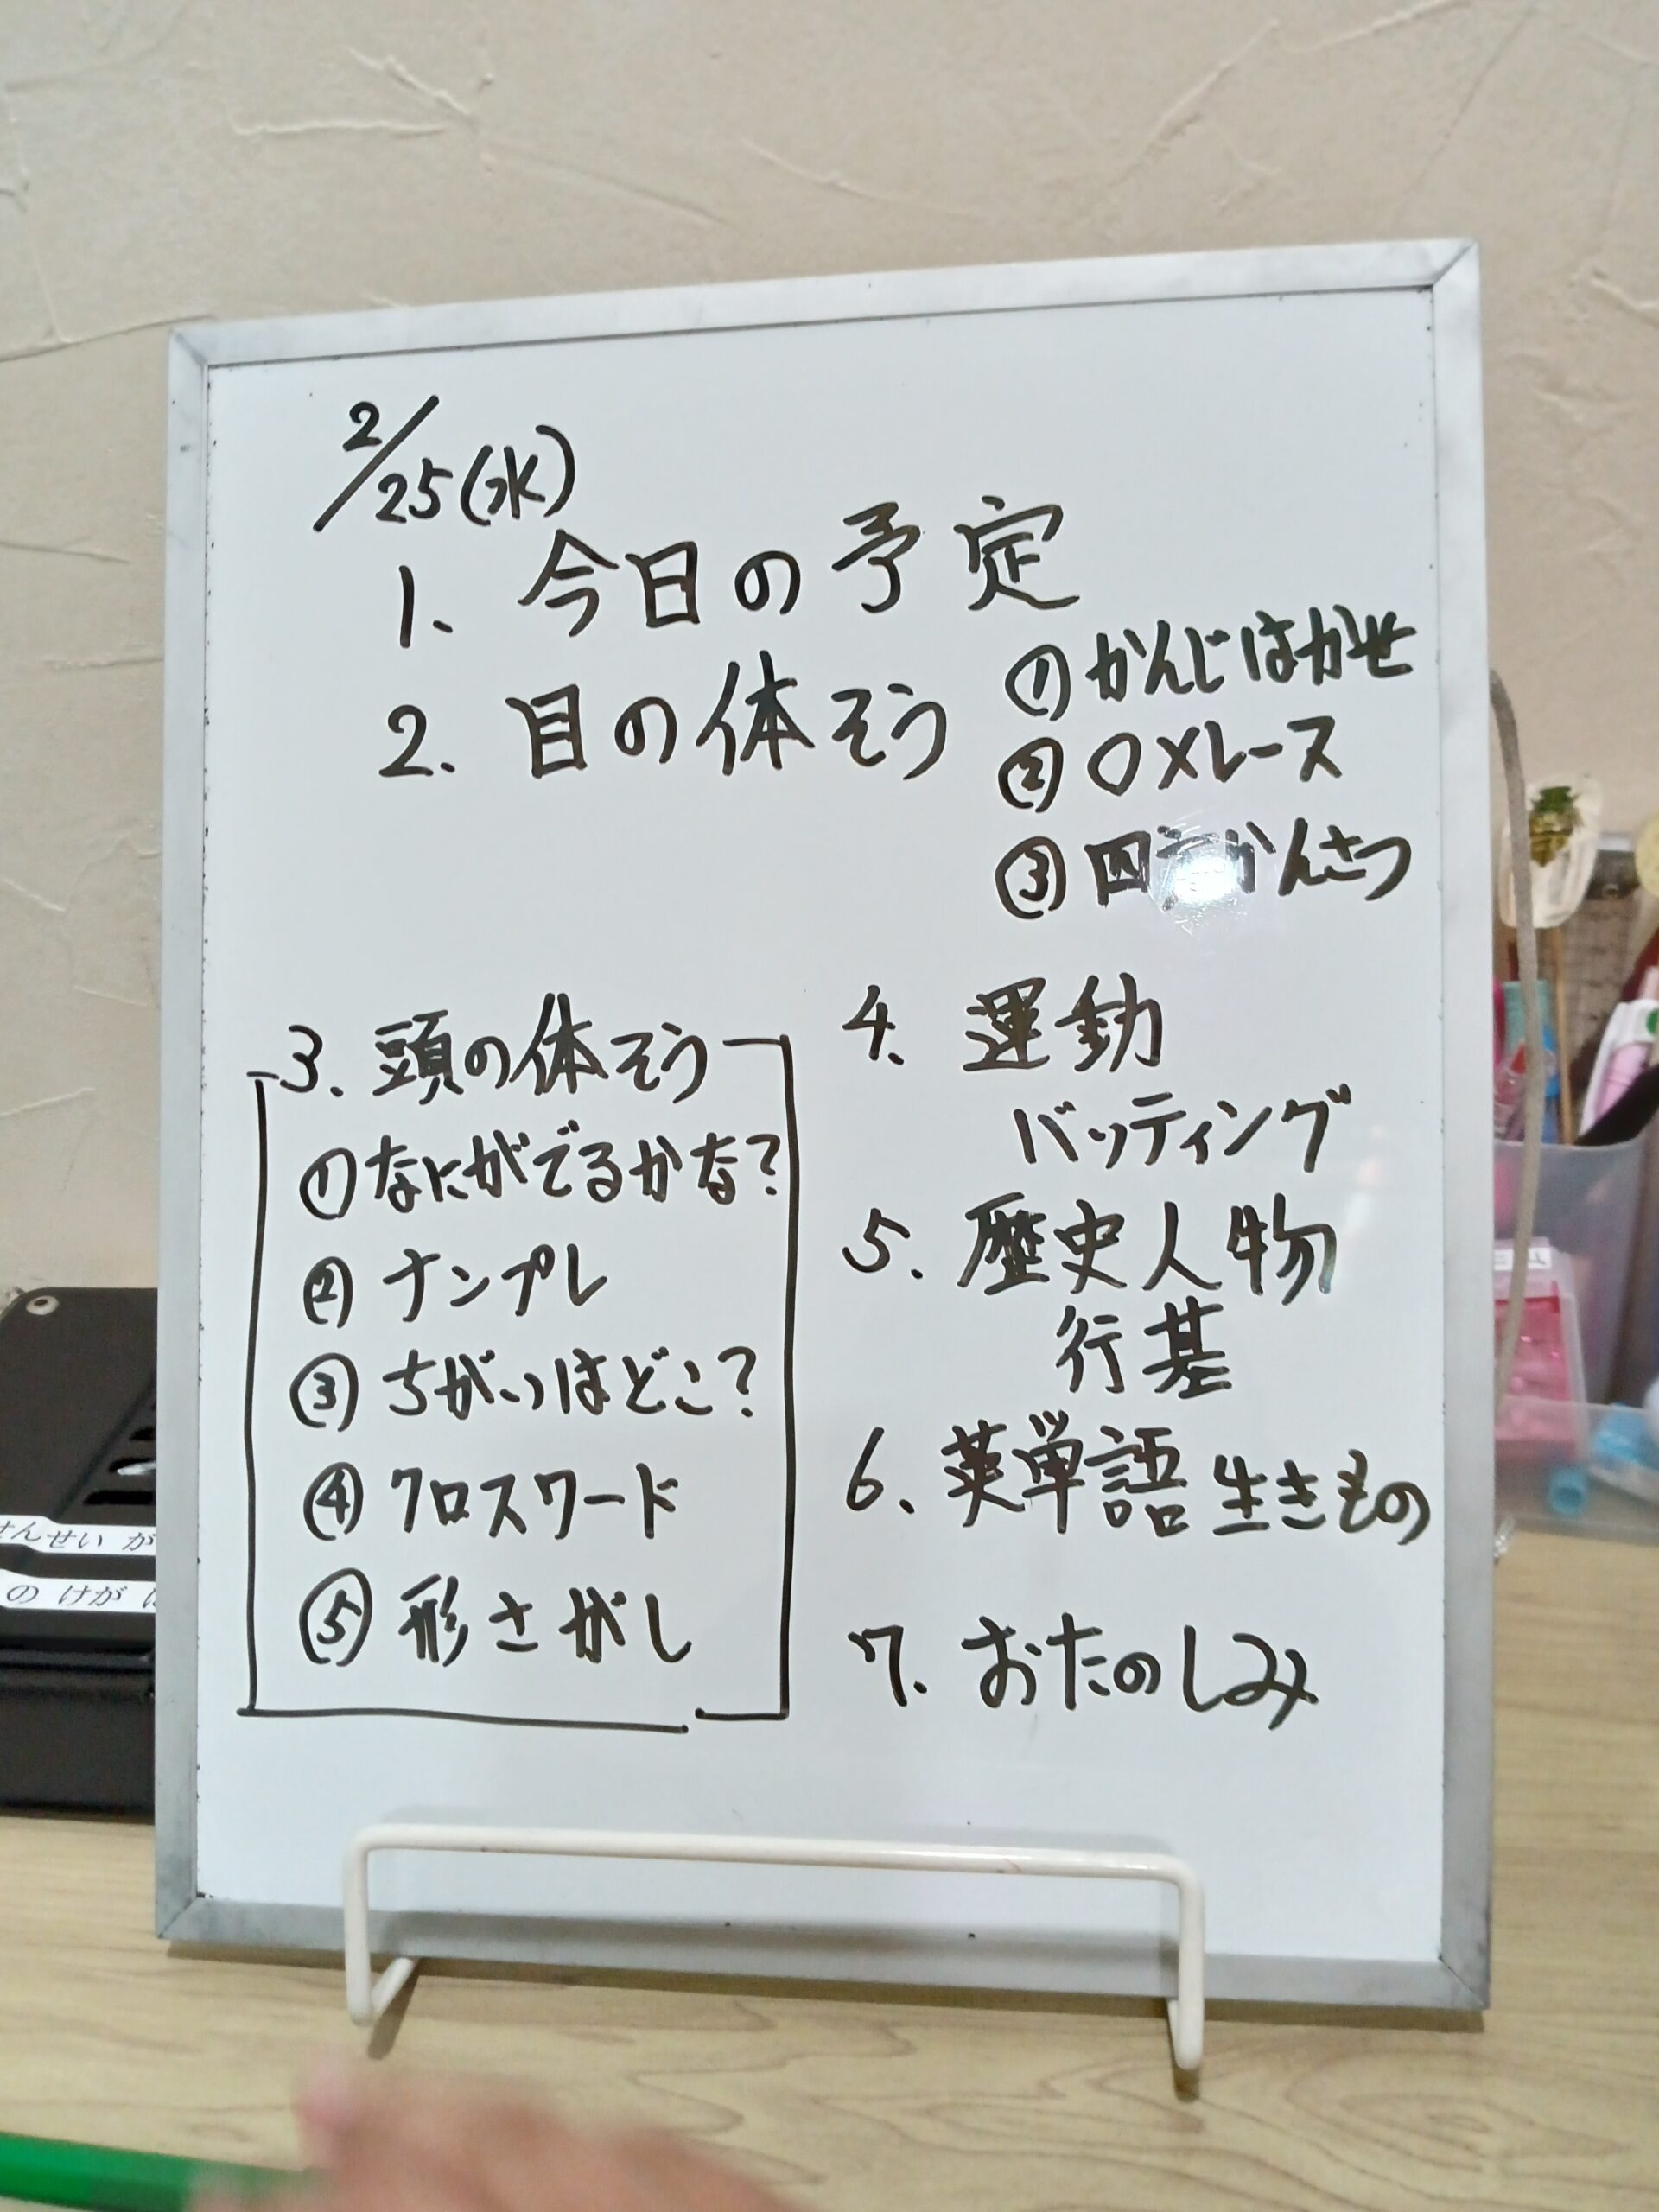 2/25(水)
1. 今日の予定
2. 目の体そう
① かんじはかせ
② ○×レース
③ 四方かんさつ
3. 頭の体そう
① なにがでるかな?
② ナンプレ
③ ちがいはどこ?
④ クロスワード
⑤ 形さがし
4. 運動
バッティング
5. 歴史人物
行基
6. 英単語 生きもの
7. おたのしみ
せんせい が
の けが は